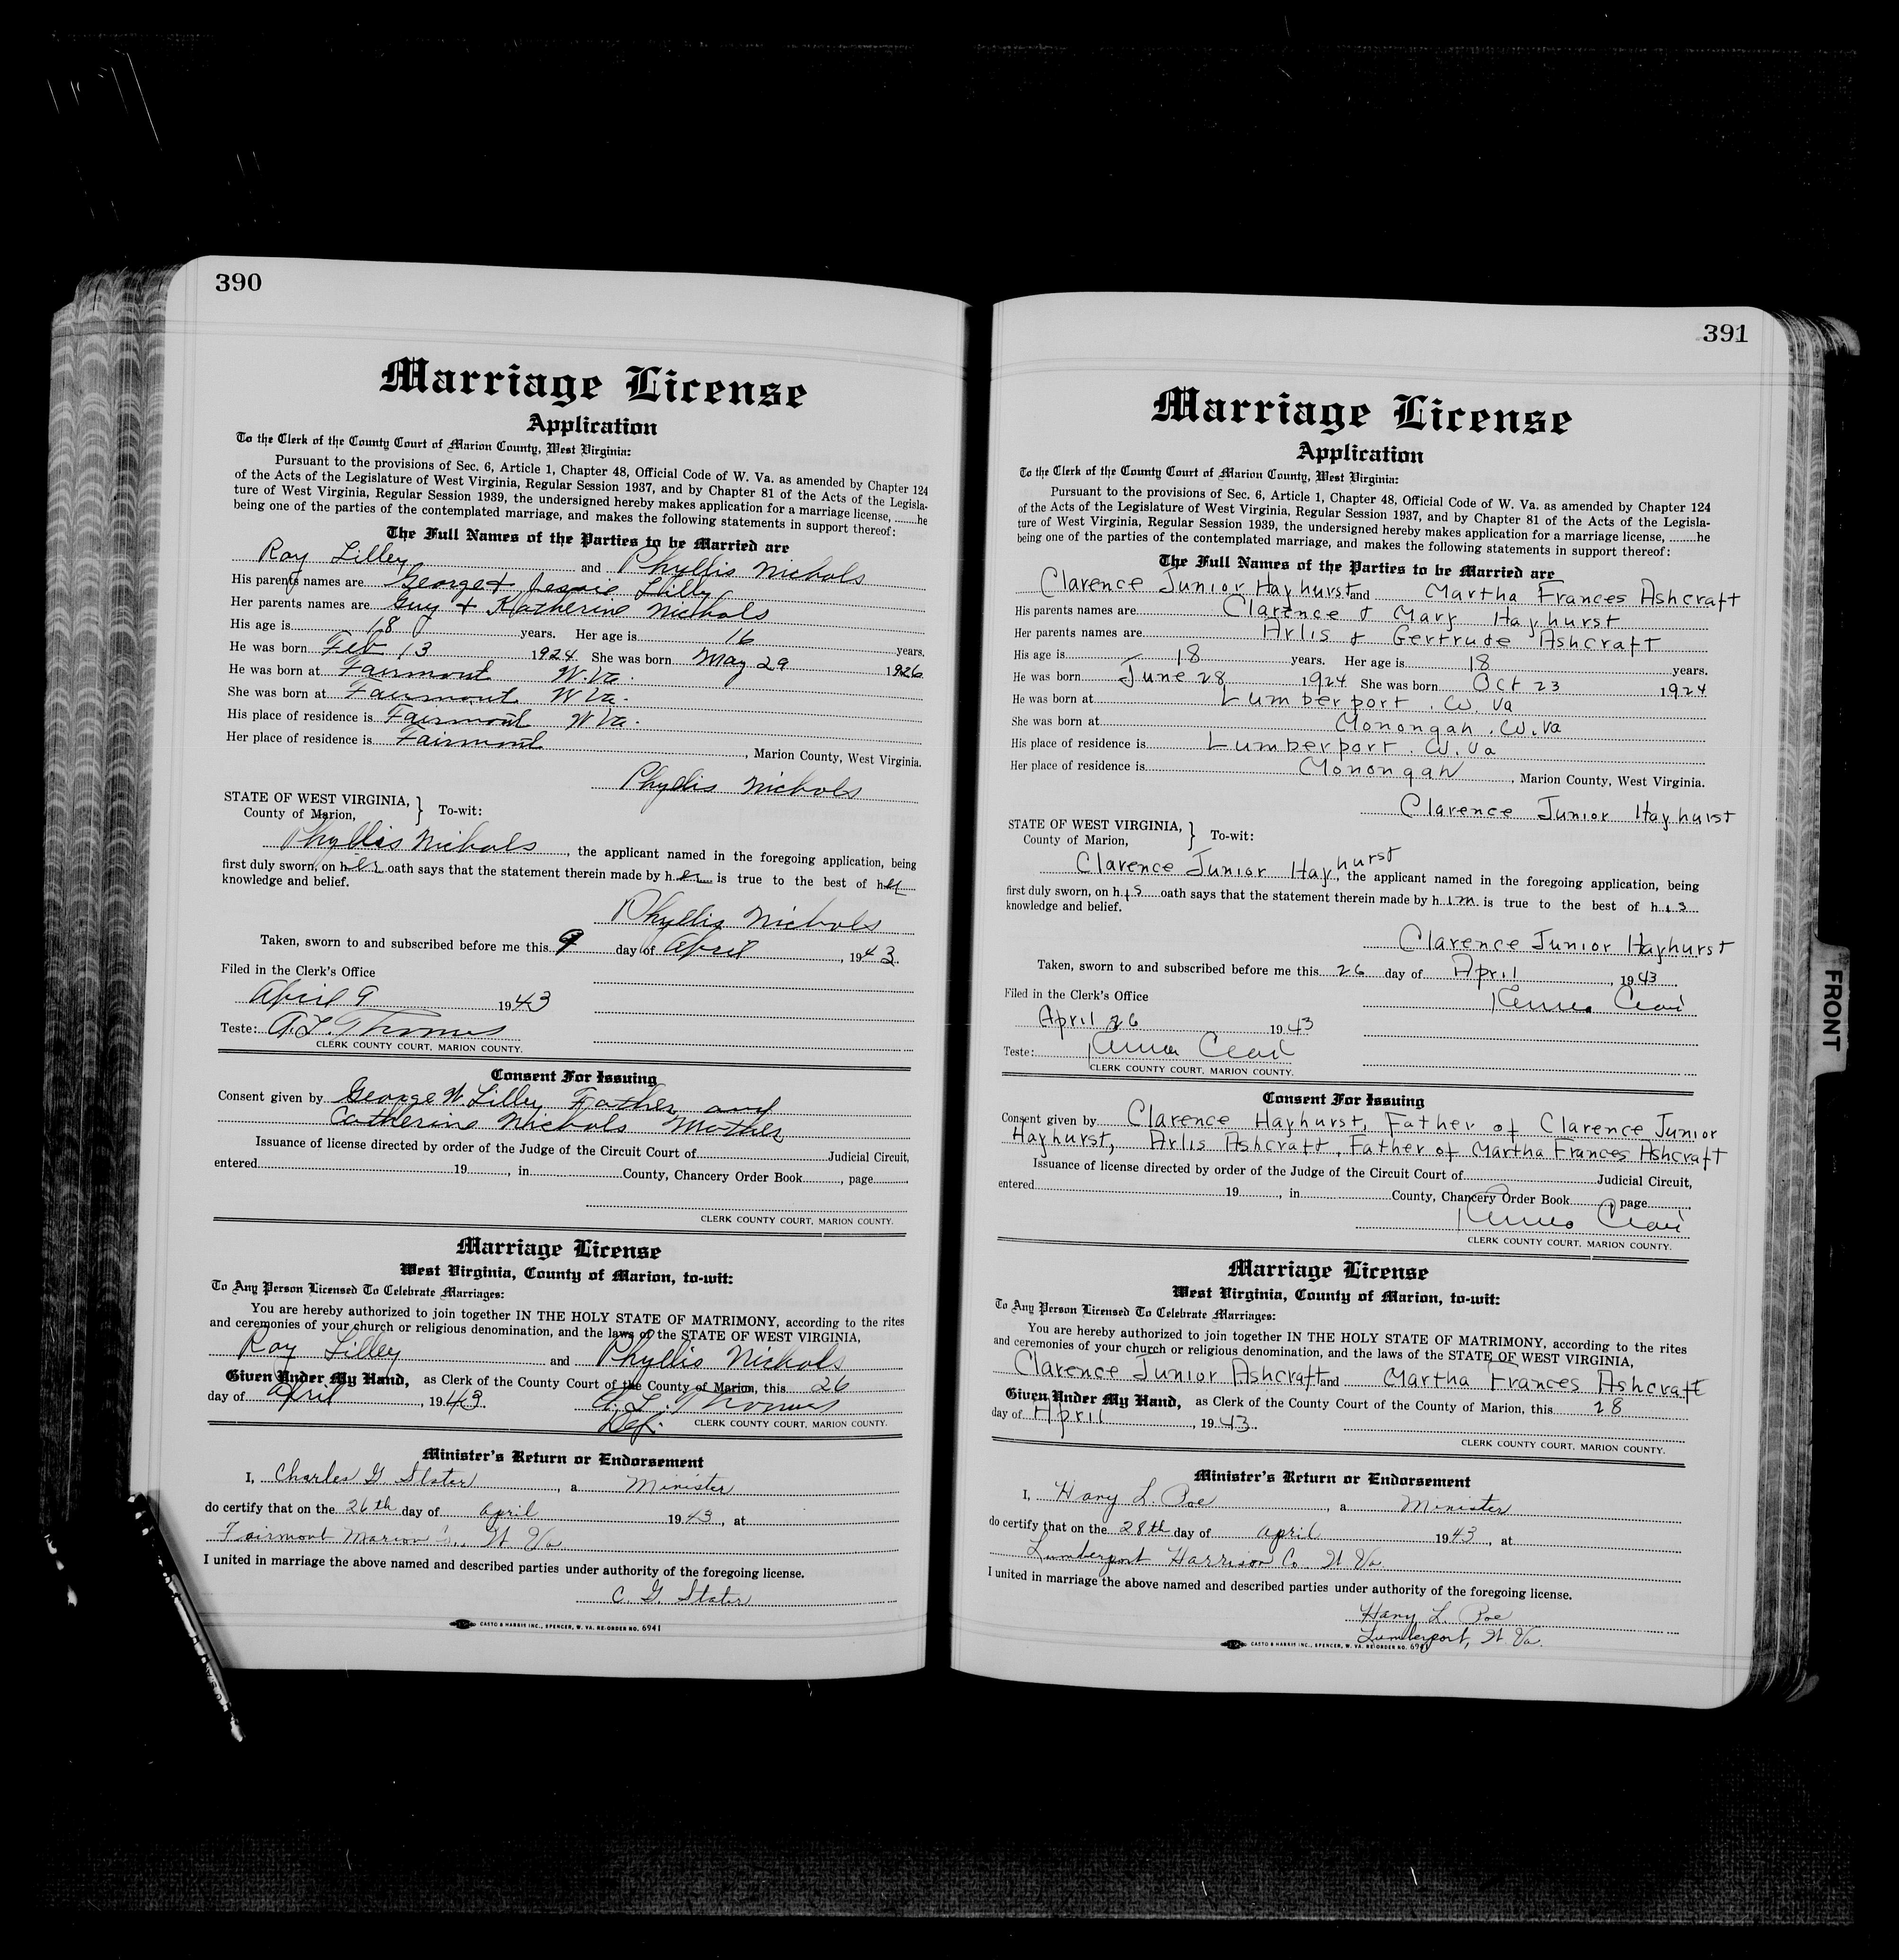 390
Marriage License
Application
To the Clerk of the County Court of Marion County, West Virginia:
Pursuant to the provisions of Sec. 6, Article 1, Chapter 48, Official Code of W. Va. as amended by Chapter 124
of the Acts of the Legislature of West Virginia, Regular Session 1937, and by Chapter 81 of the Acts of the Legisla-
ture of West Virginia, Regular Session 1939, the undersigned hereby makes application for a marriage license, ........he
being one of the parties of the contemplated marriage, and makes the following statements in support thereof:
The Full Names of the Parties to be Married are
Roy Lilley and Phyllis Nichols
His parents names are George + Jessie Lilly
Her parents names are Guy + Katherine Nichols
His age is 18 years. Her age is 16 years.
He was born Feb 13 1924 She was born May 29 1926
He was born at Fairmont W. Va.
She was born at Fairmont W Va.
His place of residence is Fairmont W Va.
Her place of residence is Fairmont, Marion County, West Virginia.
Phyllis Nichols
STATE OF WEST VIRGINIA,
County of Marion, } To-wit:
Phyllis Nichols, the applicant named in the foregoing application, being
first duly sworn, on her oath says that the statement therein made by her is true to the best of her
knowledge and belief.
Phyllis Nichols
Taken, sworn to and subscribed before me this 9 day of April, 1943.
Filed in the Clerk's Office
April 9 1943
Teste: A.L. Thomas
CLERK COUNTY COURT, MARION COUNTY.
Consent For Issuing
Consent given by George W. Lilley Father and
Catherine Nichols Mother
Issuance of license directed by order of the Judge of the Circuit Court of Judicial Circuit,
entered 19, in County, Chancery Order Book, page
CLERK COUNTY COURT, MARION COUNTY.
Marriage License
West Virginia, County of Marion, to-wit:
To Any Person Licensed To Celebrate Marriages:
You are hereby authorized to join together IN THE HOLY STATE OF MATRIMONY, according to the rites
and ceremonies of your church or religious denomination, and the laws of the STATE OF WEST VIRGINIA,
Roy Lilley and Phyllis Nichols
Given Under My Hand, as Clerk of the County Court of the County of Marion, this 26
day of April, 1943. A. L. Thomas
Dep. CLERK COUNTY COURT, MARION COUNTY.
Minister's Return or Endorsement
I, Charles G Slater, a Minister
do certify that on the 26th day of April 1943, at
Fairmont Marion Co., W Va
I united in marriage the above named and described parties under authority of the foregoing license.
C. G. Slater
CASTO & HARRIS INC., SPENCER, W. VA. RE-ORDER NO. 6941
391
Marriage License
Application
To the Clerk of the County Court of Marion County, West Virginia:
Pursuant to the provisions of Sec. 6, Article 1, Chapter 48, Official Code of W. Va. as amended by Chapter 124
of the Acts of the Legislature of West Virginia, Regular Session 1937, and by Chapter 81 of the Acts of the Legisla-
ture of West Virginia, Regular Session 1939, the undersigned hereby makes application for a marriage license, ........he
being one of the parties of the contemplated marriage, and makes the following statements in support thereof:
The Full Names of the Parties to be Married are
Clarence Junior Hayhurst and Martha Frances Ashcraft
His parents names are Clarence & Mary Hayhurst
Her parents names are Arlis & Gertrude Ashcraft
His age is 18 years. Her age is 18 years.
He was born June 28 1924 She was born Oct 23 1924
He was born at Lumberport. W. Va
She was born at Monongah. W. Va
His place of residence is Lumberport. W. Va
Her place of residence is Monongah, Marion County, West Virginia.
Clarence Junior Hayhurst
STATE OF WEST VIRGINIA,
County of Marion, } To-wit:
Clarence Junior Hayhurst, the applicant named in the foregoing application, being
first duly sworn, on his oath says that the statement therein made by him is true to the best of his
knowledge and belief.
Clarence Junior Hayhurst
Taken, sworn to and subscribed before me this 26 day of April, 1943
Filed in the Clerk's Office
April 26 1943
Teste:
CLERK COUNTY COURT, MARION COUNTY.
Consent For Issuing
Consent given by Clarence Hayhurst, Father of Clarence Junior
Hayhurst, Arlis Ashcraft, Father of Martha Frances Ashcraft
Issuance of license directed by order of the Judge of the Circuit Court of Judicial Circuit,
entered 19, in County, Chancery Order Book, page
CLERK COUNTY COURT, MARION COUNTY.
Marriage License
West Virginia, County of Marion, to-wit:
To Any Person Licensed To Celebrate Marriages:
You are hereby authorized to join together IN THE HOLY STATE OF MATRIMONY, according to the rites
and ceremonies of your church or religious denomination, and the laws of the STATE OF WEST VIRGINIA,
Clarence Junior Ashcraft and Martha Frances Ashcraft
Given Under My Hand, as Clerk of the County Court of the County of Marion, this 28
day of April, 1943.
CLERK COUNTY COURT, MARION COUNTY.
Minister's Return or Endorsement
I, Harry L. Poe, a Minister
do certify that on the 28th day of April 1943, at
Lumberport Harrison Co. W. Va.
I united in marriage the above named and described parties under authority of the foregoing license.
Harry L. Poe
Lumberport, W. Va.
CASTO & HARRIS INC., SPENCER, W. VA. RE-ORDER NO. 6941
FRONT